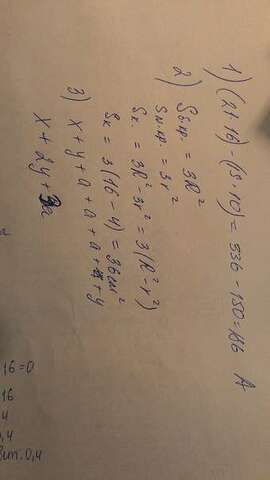 1) (21·16) - (15·10) = 336 - 150 = 186 А
2) Sб.кр. = 3R²
Sм.кр. = 3r²
Sк. = 3R² - 3r² = 3(R² - r²)
Sк = 3(16 - 4) = 36 см²
3) x + y + a + a + a + y
x + 2y + 3a
16 = 0
16
4
0,4
0,4